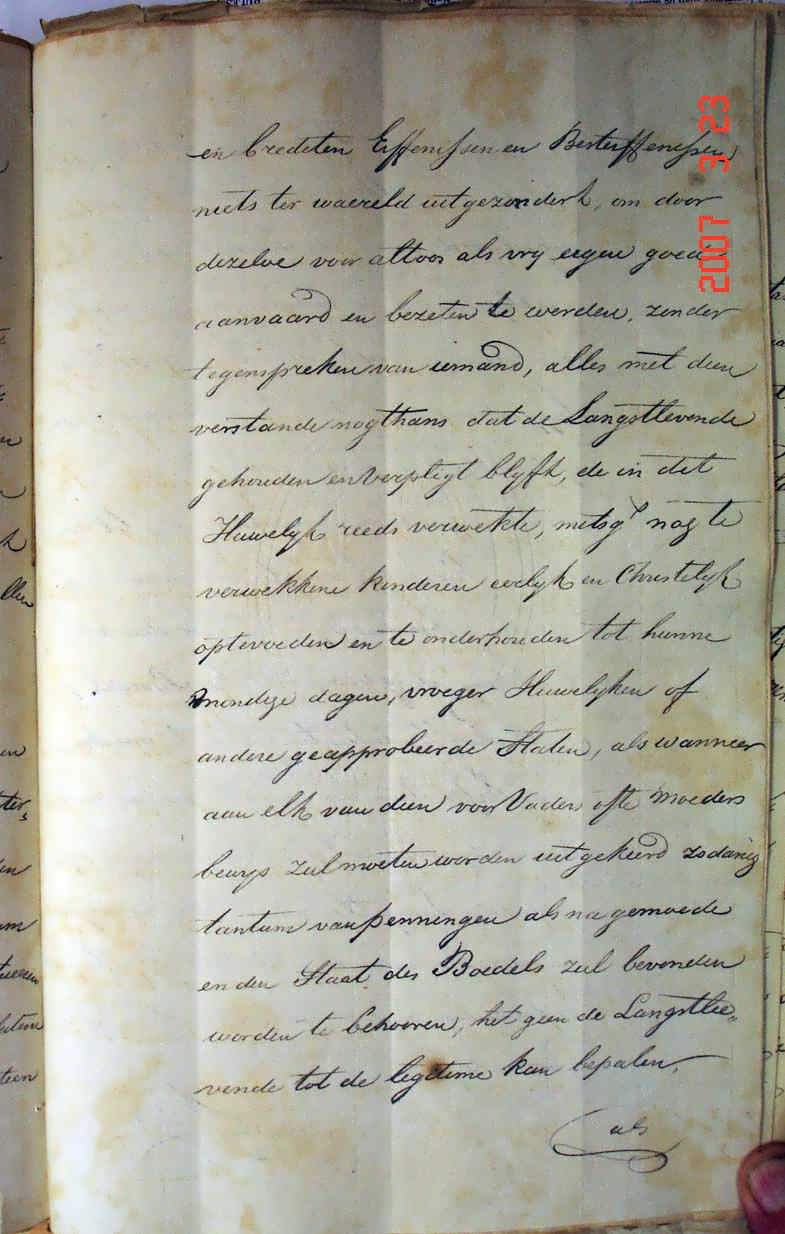 en Crediten Erffenissen en Besterffenissen
niets ter waereld uitgezonderd, om door
dezelve voor altoos als vry eigen goed
aanvaard en bezeten te werden, zonder
tegenspreken van iemand, alles met dien
verstande nogthans dat de Langstlevende
gehouden en verpligt blyft, de in dit
Huwelyk reeds verwekte, mitsgs nog te
verwekkene kinderen eerlyk en Christelyk
optevoeden en te onderhouden tot hunne
mondige dagen, vroeger Huwelyken of
andere geapprobeerde Staten, als wanneer
aan elk van dien voor Vaders ofte Moeders
bewys zul moeten worden uitgekeerd zodanig
tantum van penningen als na gemoede
en den Staat des Boedels zul bevonden
worden te behooren, het geen de Langstle„
vende tot de legitime kan bepalen,
als
2007 3 23